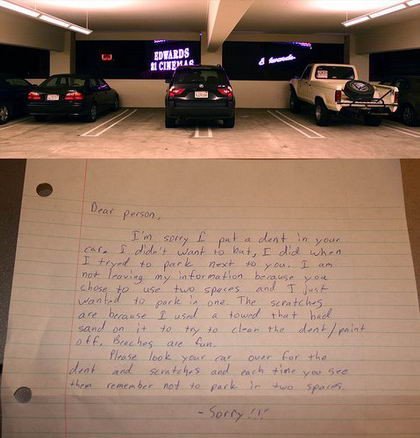 EDWARDS
21 CINEMAS
Dear person,
I'm sorry I put a dent in your
car. I didn't want to but, I did when
I tryed to park next to you. I am
not leaving my information because you
chose to use two spaces and I just
wanted to park in one. The scratches
are because I used a towel that had
sand on it to try to clean the dent/paint
off. Beeches are fun.
Please look your car over for the
dent and scratches and each time you see
them remember not to park in two spaces.
- Sorry!!!